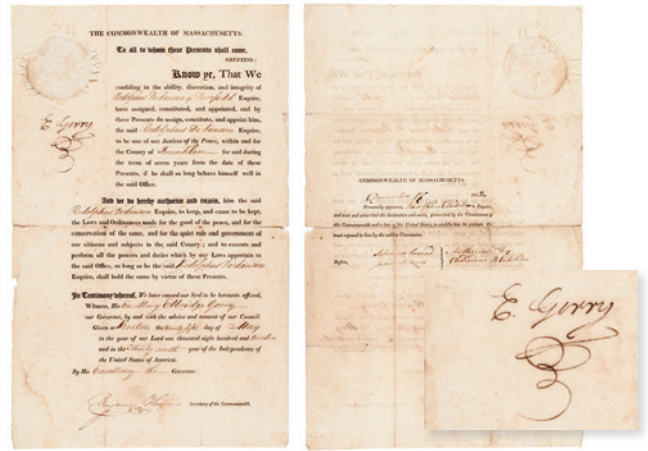 THE COMMONWEALTH OF MASSACHUSETTS.
To all to whom these Presents shall come,
GREETING:
Know ye, That We
confiding in the ability, discretion, and integrity of
Esquire,
have assigned, constituted, and appointed, and by
these Presents do assign, constitute, and appoint him,
the said Esquire,
to be one of our Justices of the Peace, within and for
the County of Franklin for and during
the term of seven years from the date of these
Presents, if he shall so long behave himself well in
the said Office.
E Gerry
And we do hereby authorise and enjoin, him the said
Esquire, to keep, and cause to be kept,
the Laws and Ordinances made for the good of the peace, and for the
conservation of the same, and for the quiet rule and government of
our citizens and subjects in the said County; and to execute and
perform all the powers and duties which by our Laws appertain to
the said Office, as long as he the said
Esquire, shall hold the same by virtue of these Presents.
In Testimony whereof, We have caused our Seal to be hereunto affixed,
Witness, His Excellency Elbridge Gerry
our Governor, by and with the advice and consent of our Council.
Given at Boston the twenty day of May
in the year of our Lord one thousand eight hundred and
and in the thirty sixth year of the Independence of
the United States of America.
By His Excellency the Governor.
Secretary of the Commonwealth.
COMMONWEALTH OF MASSACHUSETTS.
Personally appeared, Esquire,
and took and subscribed the declaration and oaths, prescribed by the Constitution of
the Commonwealth and a law of the United States, to qualify him to execute the
trust reposed in him by the within Commission.
Before,
E. Gerry